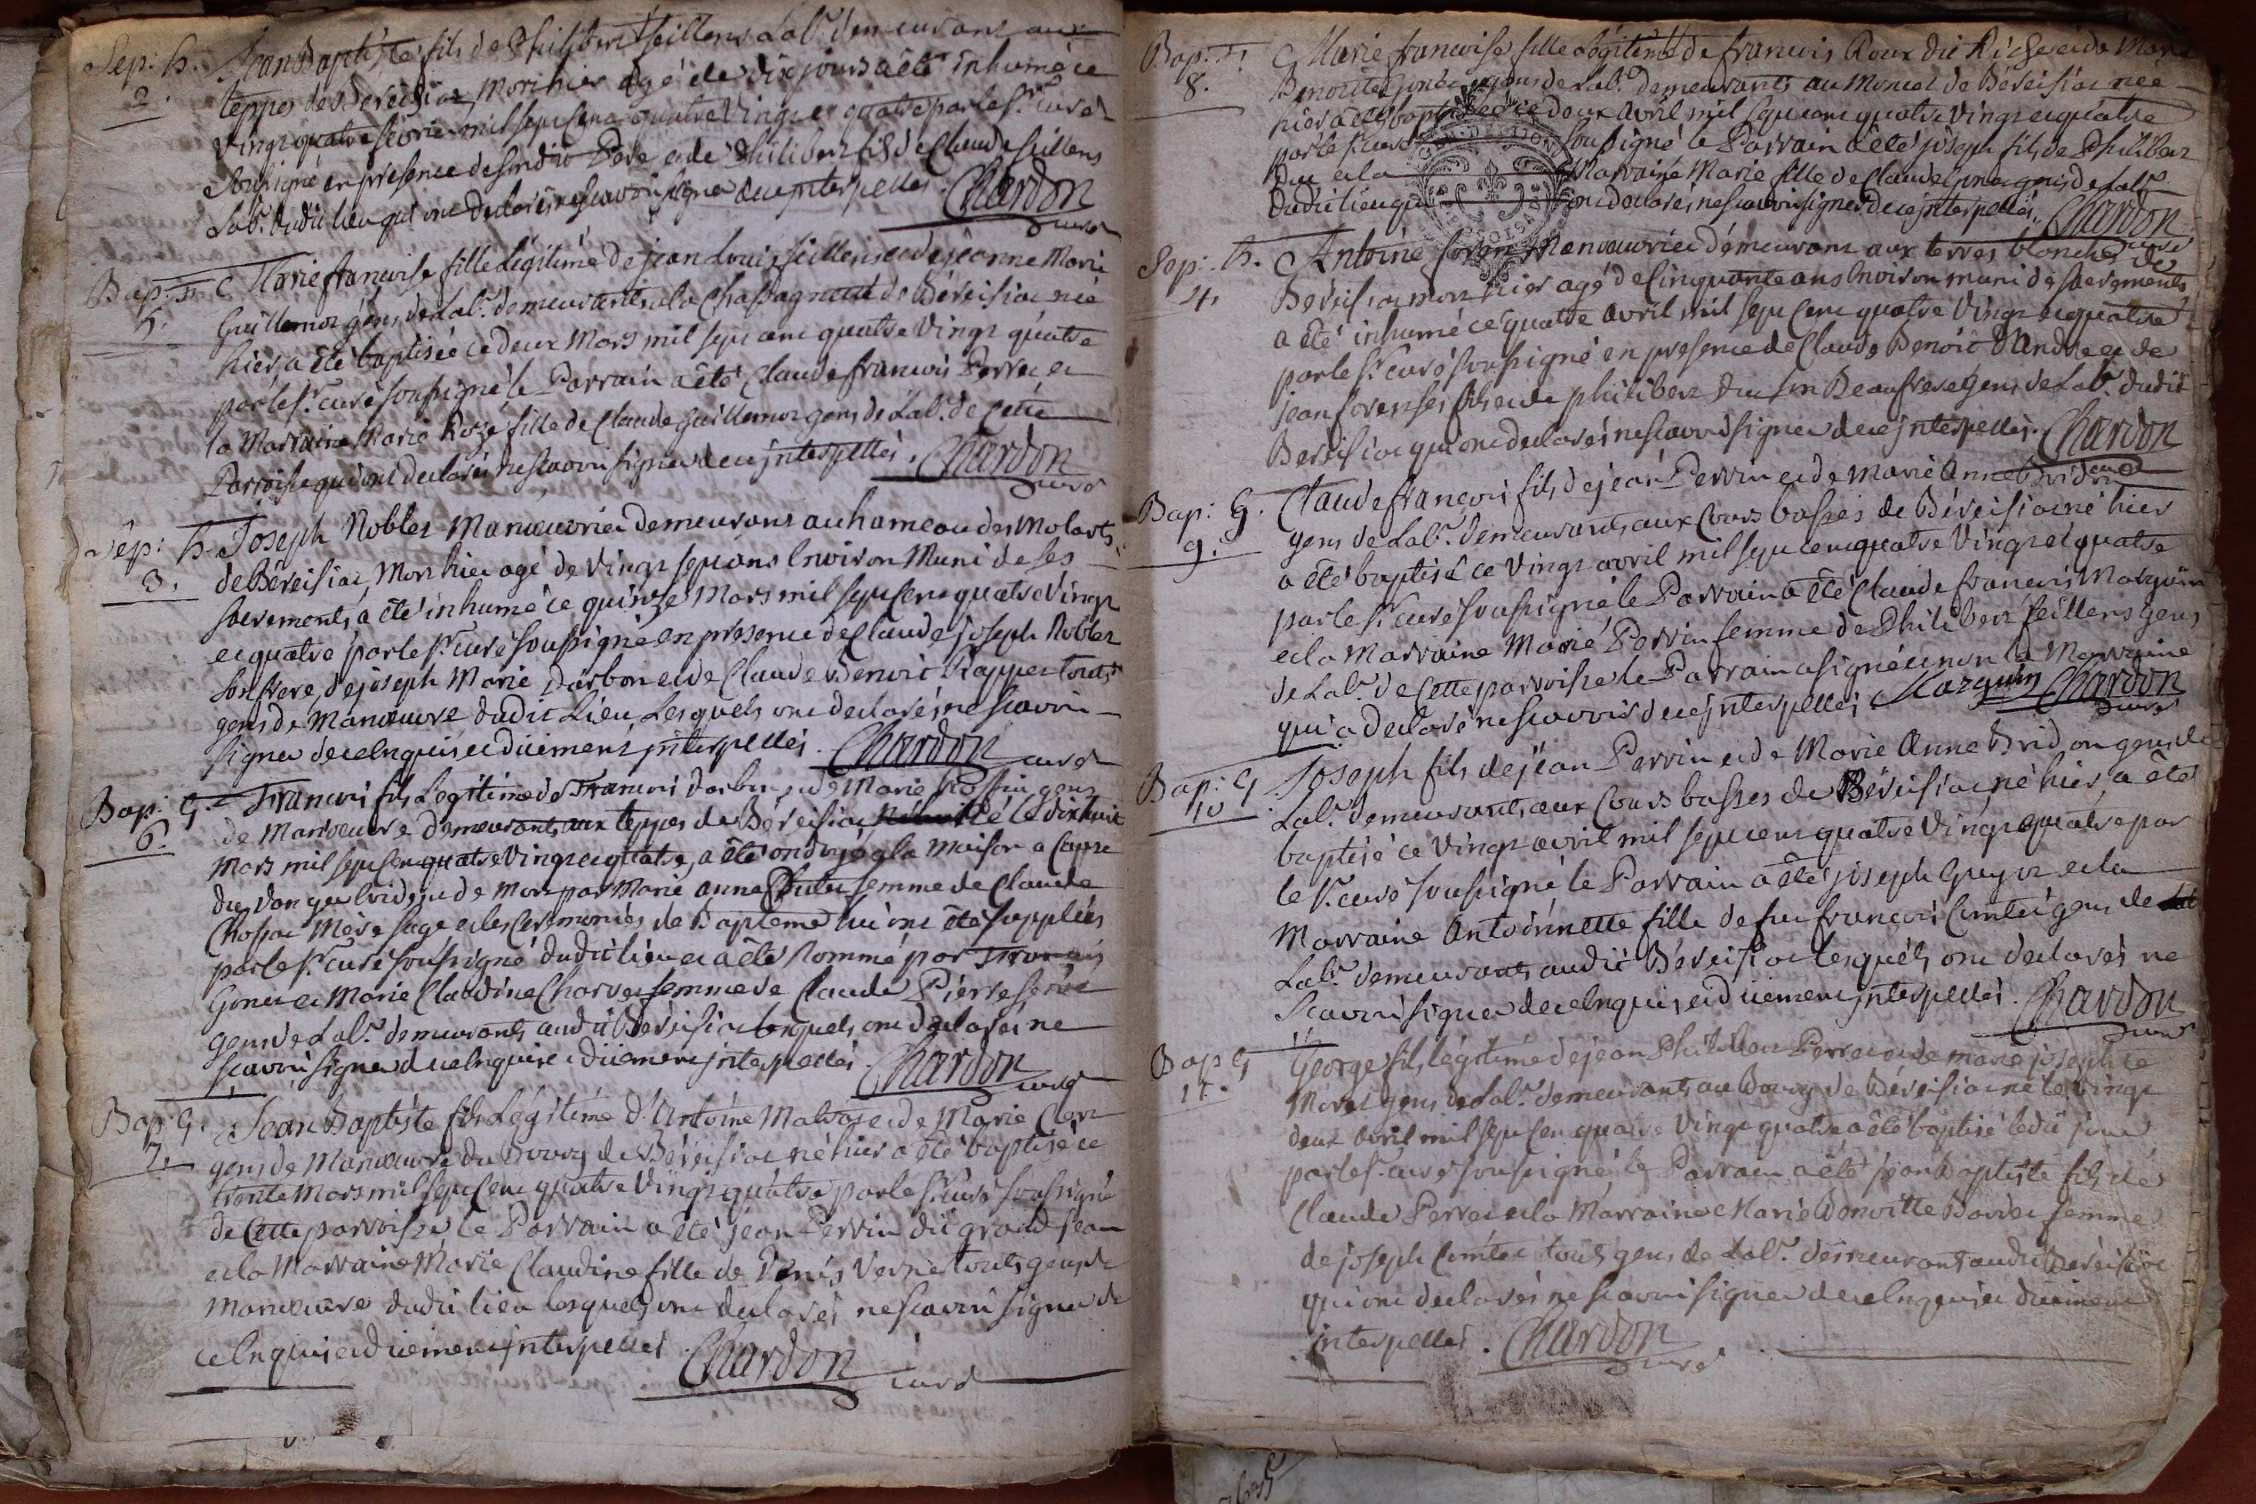 Sep: h.
2.
Jean Baptiste fils de Philibert feillens Lab.r demeurant aux
teppes de Béreisiat, Mort hier agé de dix jours a été inhumé ce
vingt quatre fevrier mil sept cent quatre vingt et quatre par le S.r curé
soussigné en presence de sondit Pere et de Philibert fils de Claude feillens
Lab.r dudit lieu qui ont declarés ne scavoir signer de ce interpellés. Chardon
curé
Bap: f.
5.
Marie francoise fille Légitime de jean Louis feillens et de jeanne Marie
Guillemot gens de Lab.r demeurants a la Chassagne de Béreisiat née
hier, a été baptisée ce deux Mars mil sept cent quatre vingt quatre
par le S.r curé soussigné le Parrain a été Claude francois Perret et
la Marraine Marie Roze fille de Claude Guillemot gens de Lab.r de cette
Parroisse qui ont declarés ne scavoir signer de ce interpellés. Chardon
curé
Sep: h.
3.
Joseph Noblet Manœuvrier demeurant au hameau des Molards
de Béreisiat, Mort hier agé de vingt sept ans Environ Muni de ses
sacrements, a été inhumé ce quinze Mars mil sept cent quatre vingt
et quatre par le S.r curé soussigné en presence de Claude joseph Noblet
son frere, de joseph Marie Darbon et de Claude Benoit touts
gens de Manœuvre dudit Lieu Lesquels ont declarés ne scavoir
signer de ce Enquis et düement interpellés. Chardon curé
Bap: G.
6.
Francois fils Légitime de Francois Darbon et de Marie gens
de Manœuvre demeurants aux teppes de Béreisiat le dix huit
Mars mil sept cent quatre vingt et quatre, a été ondoyé a la Maison a cause
du danger de Mort par Marie Anne femme de Claude
Mère sage et les Ceremonies de Baptême lui ont été suppléés
par le S.r curé soussigné dudit lieu et a été Nommé par Francois
et Marie Claudine Charvet femme de Claude Pierre
gens de Lab.r demeurants audit Béreisiat lesquels ont declarés ne
scavoir signer de ce Enquis et düement interpellés. Chardon
curé
Bap: G.
7.
Jean Baptiste fils Légitime d'Antoine et de Marie
gens de Manœuvre du Bourg de Béreisiat né hier a été baptisé ce
trente Mars mil sept cent quatre vingt quatre par le S.r curé soussigné
de Cette parroisse le Parrain a été jean Perrin dit grand jean
et la Marraine Marie Claudine fille de Denis Verne touts gens de
Manœuvre dudit lieu lesquels ont declarés ne scavoir signer de
ce Enquis et düement interpellés. Chardon curé
Bap: f.
8.
Marie francoise fille Légitime de francois Roux dit et de Marie
Benoite gens de Lab.r demeurants au Moncel de Béreisiat née
hier a été baptisée ce deux avril mil sept cent quatre vingt et quatre
par le S.r curé soussigné le Parrain a été joseph fils de Philibert
et la Marraine Marie fille de Claude gens de Lab.r
dudit lieu qui ont declarés ne scavoir signer de ce interpellés. Chardon
curé
Sep: h.
4.
Antoine Manœuvrier demeurant aux terres blanches de
Béreisiat mort hier agé de Cinquante ans Environ muni de sacrements
a été inhumé ce quatre avril mil sept cent quatre vingt et quatre
par le S.r curé soussigné en presence de Claude Benoit et de
jean ses fils et de philibert son Beaufrere gens de Lab.r dudit
Béreisiat qui ont declarés ne scavoir signer de ce interpellés. Chardon
curé
Bap: G.
9.
Claude francois fils de jean Perrin et de Marie Anne Bridon
gens de Lab.r demeurants aux Cours basses de Béreisiat né hier
a été baptisé ce vingt avril mil sept cent quatre vingt et quatre
par le S.r curé soussigné le Parrain a été Claude francois Marguin
et la Marraine Marie Perrin femme de Philibert feillens gens
de Lab.r de Cette parroisse le Parrain a signé et non la Marraine
qui a declaré ne scavoir de ce interpellés. Marguin Chardon
curé
Bap: G
10
Joseph fils de jean Perrin et de Marie Anne Bridon gens de
Lab.r demeurants aux Cours basses de Béreisiat, né hier, a été
baptisé ce vingt avril mil sept cent quatre vingt quatre par
le S.r curé soussigné le Parrain a été joseph Guyot et la
Marraine Antoinette fille de feu francois Comtet gens de
Lab.r demeurants audit Béreisiat lesquels ont declarés ne
scavoir signer de ce Enquis et düement interpellés. Chardon
curé
Bap G
11.
George fils légitime de jean Philibert Perret et de marie joseph
Morel gens de Lab.r demeurants au Bourg de Béreisiat né le vingt
deux avril mil sept cent quatre vingt quatre a été baptisé ledit jour
par le S.r curé soussigné, le Parrain a été jean Baptiste fils de
Claude Perret et la Marraine Marie femme
de joseph Comtet touts gens de Lab.r demeurants audit Béreisiat
qui ont declarés ne scavoir signer de ce Enquis et düement
interpellés. Chardon
curé